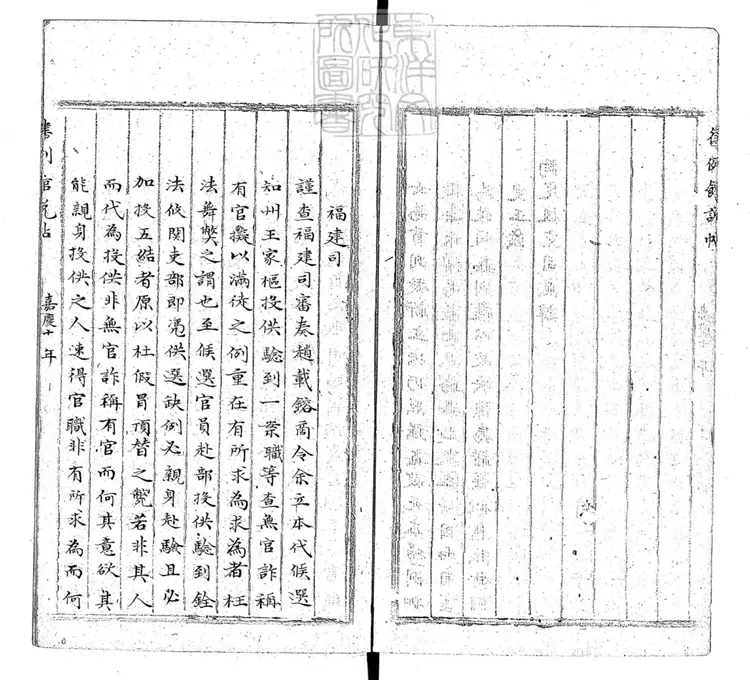 福建司
謹查福建司審奏趙載鎔商令余立本代候選
知州王家樞投供驗到一案職等查無官詐稱
有官擬以滿徒之例重在有所求為求為者枉
法舞獘之謂也至候選官員赴部投供驗到銓
法攸関吏部即凴供選缺例必親身赴驗且必
加投五結者原以杜假冒頂替之獘若非其人
而代為投供非無官詐稱有官而何其意欲其
能親身投供之人速得官職非有所求為而何
嘉慶十 年